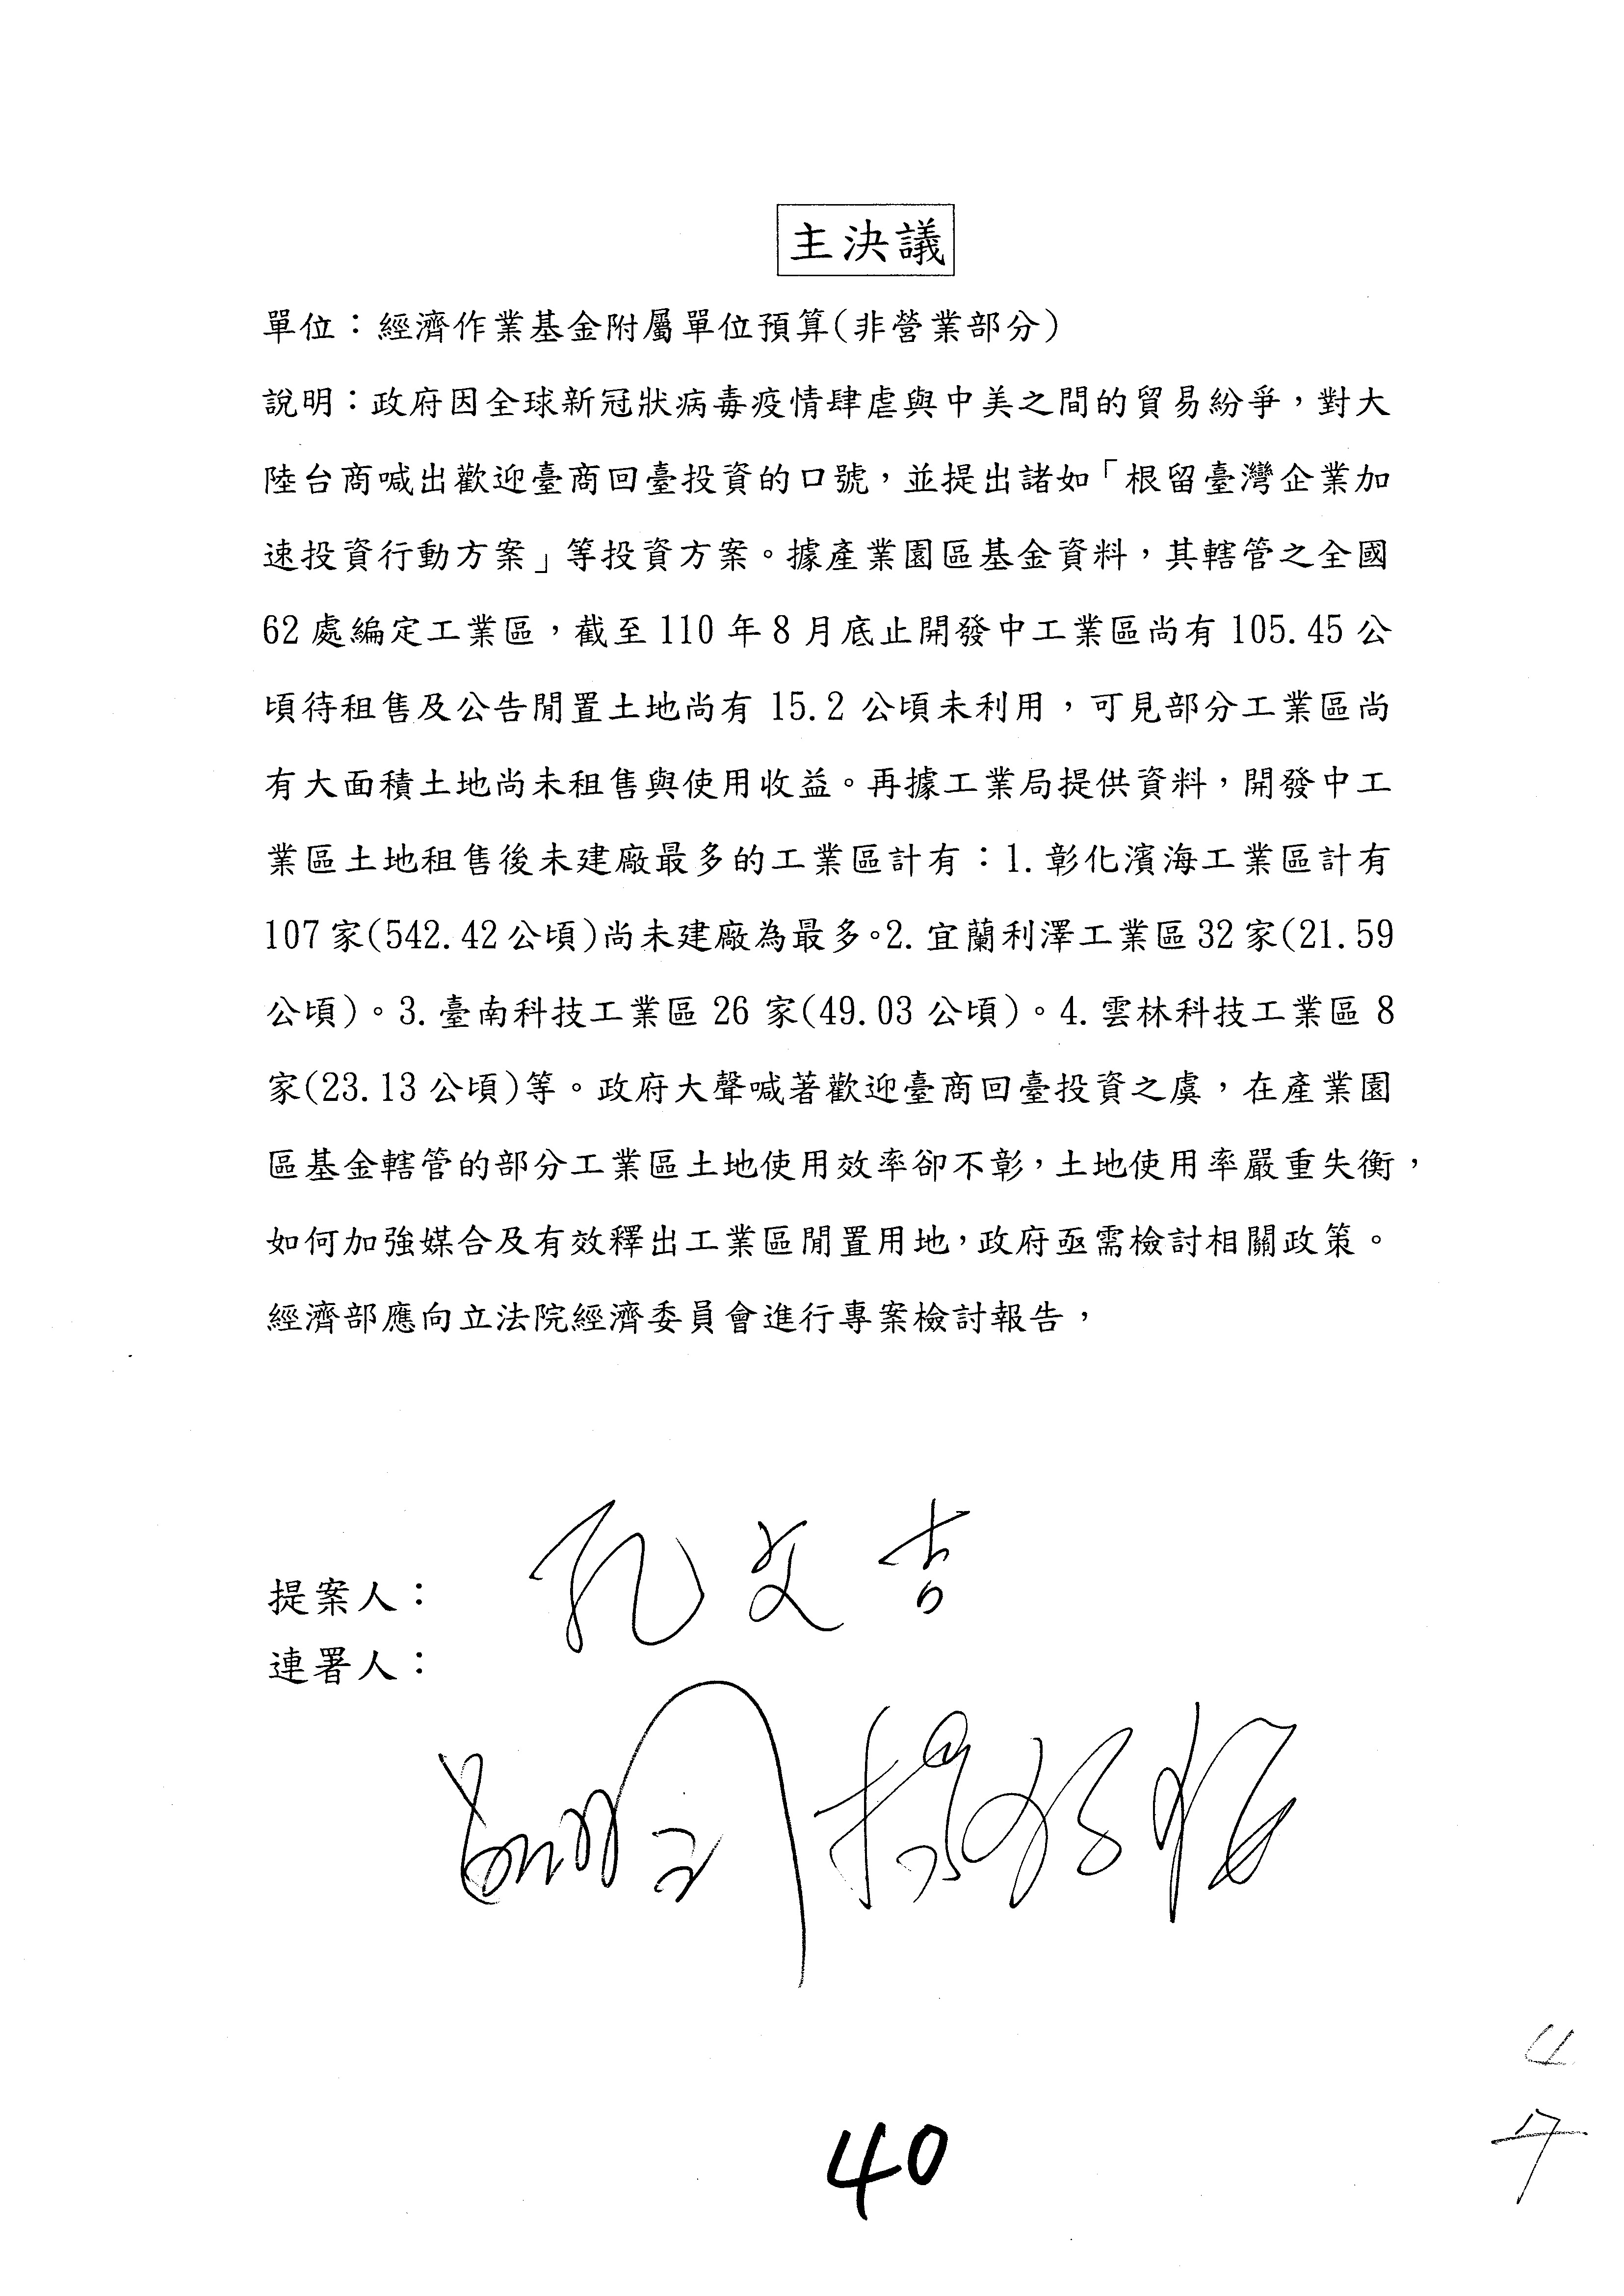 主決議
單位：經濟作業基金附屬單位預算(非營業部分)
說明：政府因全球新冠狀病毒疫情肆虐與中美之間的貿易紛爭，對大
陸台商喊出歡迎臺商回臺投資的口號，並提出諸如「根留臺灣企業加
速投資行動方案」等投資方案。據產業園區基金資料，其轄管之全國
62處編定工業區，截至110年8月底止開發中工業區尚有105.45公
頃待租售及公告閒置土地尚有15.2公頃未利用，可見部分工業區尚
有大面積土地尚未租售與使用收益。再據工業局提供資料，開發中工
業區土地租售後未建廠最多的工業區計有：1.彰化濱海工業區計有
107家(542.42公頃)尚未建廠為最多。2.宜蘭利澤工業區32家(21.59
公頃)。3.臺南科技工業區26家(49.03公頃)。4.雲林科技工業區8
家(23.13公頃)等。政府大聲喊著歡迎臺商回臺投資之虞，在產業園
區基金轄管的部分工業區土地使用效率卻不彰，土地使用率嚴重失衡，
如何加強媒合及有效釋出工業區閒置用地，政府亟需檢討相關政策。
經濟部應向立法院經濟委員會進行專案檢討報告，
提案人：孔文吉
連署人：
4
7
40